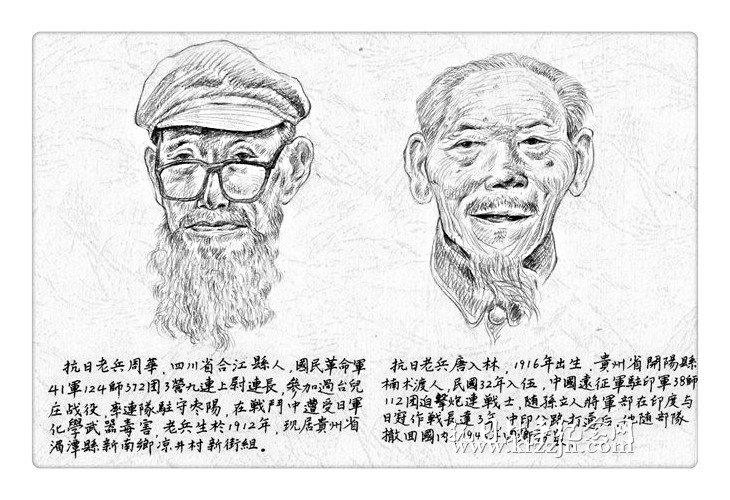 抗日老兵周華，四川省合江縣人，國民革命軍
41軍124師372团3營九連上尉連長，參加過台兒
庄战役，率連隊駐守枣陽，在戰鬥中遭受日軍
化學武器毒害，老兵生於1912年，现居貴州省
湄潭縣新南鄉凉井村新街組。
抗日老兵唐入林，1916年出生，貴州省開陽縣
楠木渡人，民國32年入伍，中國遠征軍駐印軍38師
112团迫擊炮連戰士，随孫立人將軍部在印度与
日寇作戰長達3年，中印公路打通后，他随部隊
撤回國内，194